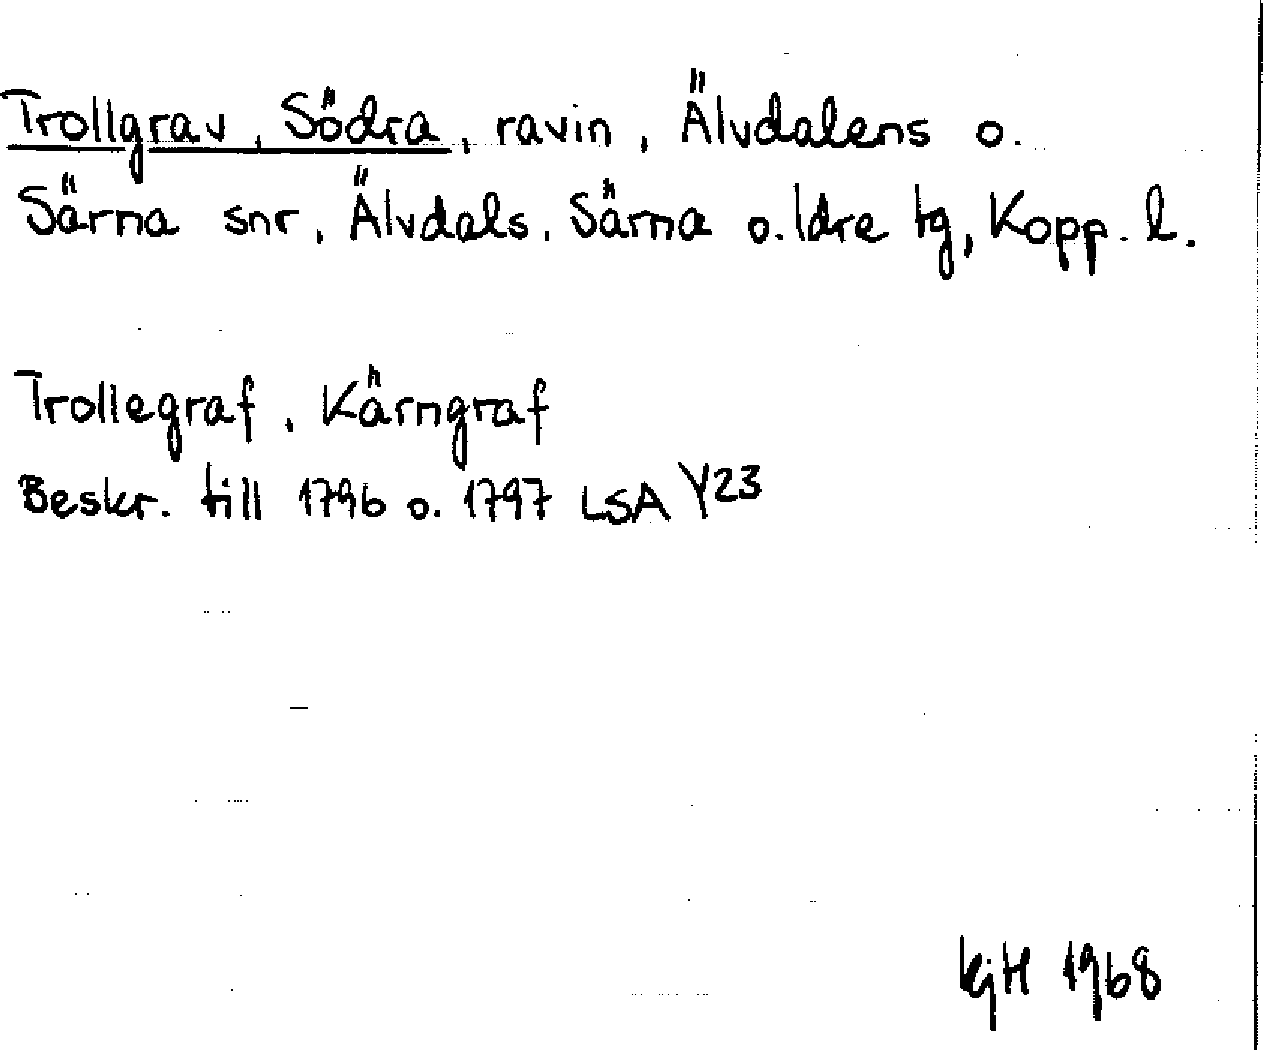 Trollgrav, Södra, ravin, Älvdalens o.
Särna snr, Älvdals, Särna o. Idre tg, Kopp. l.
Trollegraf, Kärngraf
Beskr. till 1796 o. 1797 LSA Y23
kjH 1968